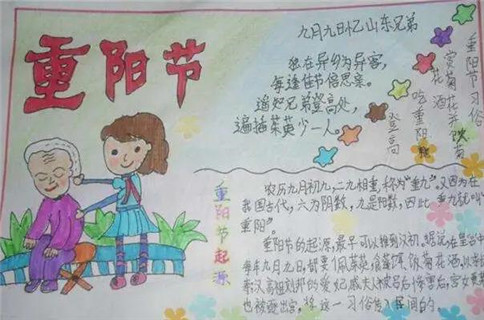 重阳节
九月九日忆山东兄弟
独在异乡为异客,
每逢佳节倍思亲。
遥知兄弟登高处,
遍插茱萸少一人。
重阳节习俗
赏菊花并饮菊
花酒
吃重阳糕
登高
重阳节起源
农历九月初九,二九相重,称为"重九",又因为在
我国古代,六为阴数,九是阳数,因此,重九就叫"
重阳"。
重阳节的起源,最早可以推到汉初,据说在皇宫中
每年九月九日,都要佩茱萸,食蓬饵,饮菊花酒,以求
汉高祖刘邦的爱妃戚夫人被吕后惨害后,宫女贾某
也被逐出宫,将这一习俗传入民间的